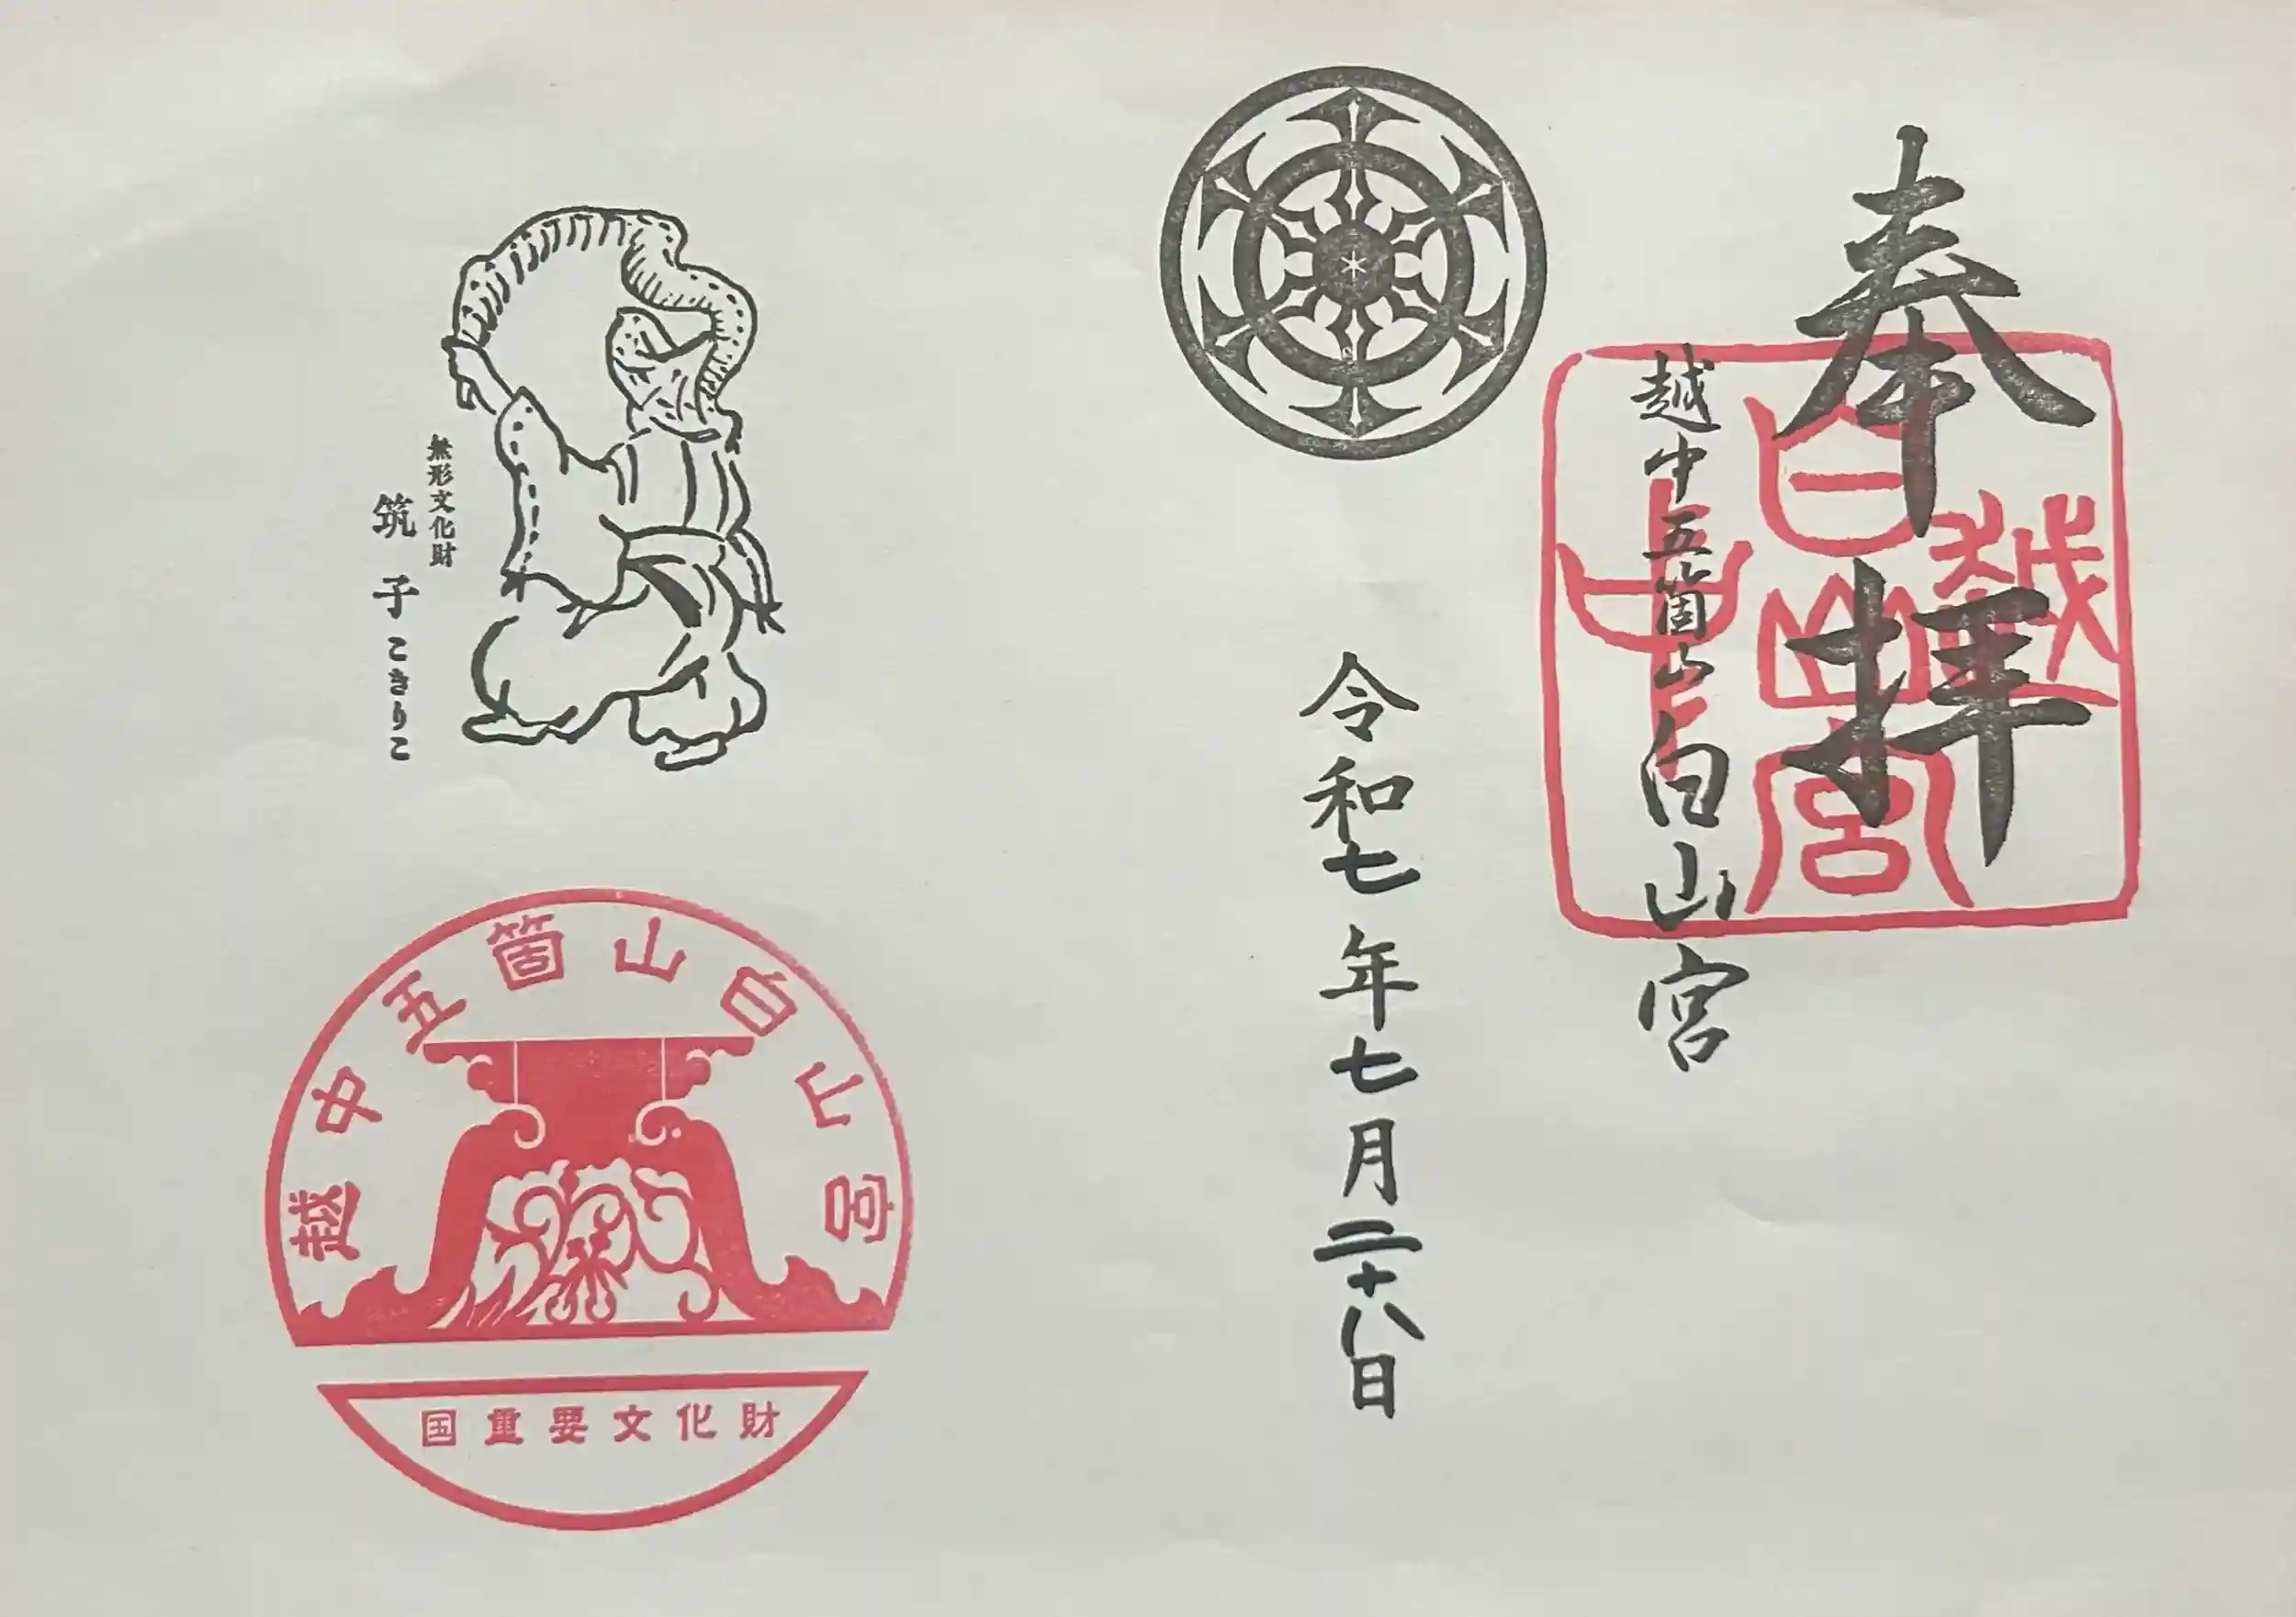 奉拝
越中五箇山白山宮
越中
白山宮
令和七年七月二十八日
無形文化財
筑子こきりこ
越中五箇山白山宮
国重要文化財